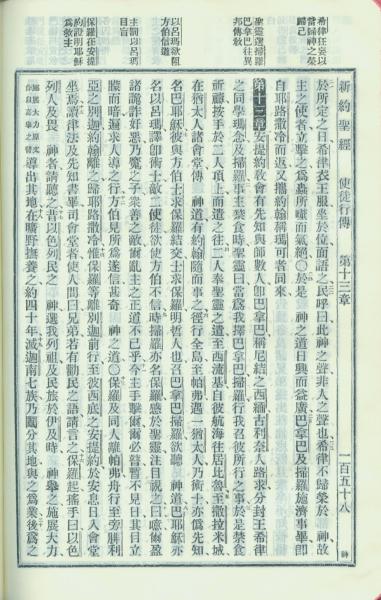 新約聖經 使徒行傳 第十三章 一百五十八 神
希律狂妄以
當歸神之榮
歸己
聖靈選掃羅
巴拿巴往異
邦傳敎
以呂瑪欲阻
方伯信道
主罰以呂馬
目盲
保羅在安提
約證明耶穌
爲救主
於所定之日希律衣王服坐於位而語之民呼曰此神之聲非人之聲也希律不歸榮於 神故
主之使者立擊之爲蟲所囓而氣絕〇於是 神之道日興而益廣巴拿巴及掃羅施濟事畢卽
自耶路撒冷而返又攜約翰稱瑪可者同來
第十三章安提約敎會有先知與師數人卽巴拿巴稱尼結之西緬古利奈人路求分封王希律
之同學瑪念及掃羅事主禁食時聖靈曰當爲我擇巴拿巴掃羅行我召彼所行之事於是禁食
祈禱按手於二人頂上而遣之往二人奉聖靈之遣至西流基自彼航海往居比魯至撒拉米城
在猶太人諸會堂傳 神道有約翰隨而事之徑行全島至帕弗遇一猶太人乃術士亦僞先知
名巴耶穌彼與方伯士求保羅結交士求保羅明哲人也召巴拿巴掃羅欲聽 神道巴耶穌亦
名以呂瑪譯卽術士敵二使徒欲使方伯不信時掃羅亦名保羅感於聖靈注目視之曰噫爾盈
諸詭詐奸惡乃魔之子衆善之敵爾亂主之正道不已乎今主手擊爾爾必瞽暫不見日其目立
矇而暗遍求人導之行方伯見所爲遂信甚奇 神之道〇保羅及同人離帕弗舟行至旁腓利
亞之別迦約翰離之歸耶路撒冷惟保羅等離別迦前行至彼西底之安提約於安息日入會堂
坐焉讀律法及先知書畢司會堂者使人問曰兄弟若有勸民之語請言之保羅起搖手曰以色
列人及畏 神者請聽之昔以色列民之 神選我列祖及民旅於伊及時 神擧之施展大力
導出其地在曠野撫養之約四十年滅迦南七族乃鬮分其地與之爲業後爲之